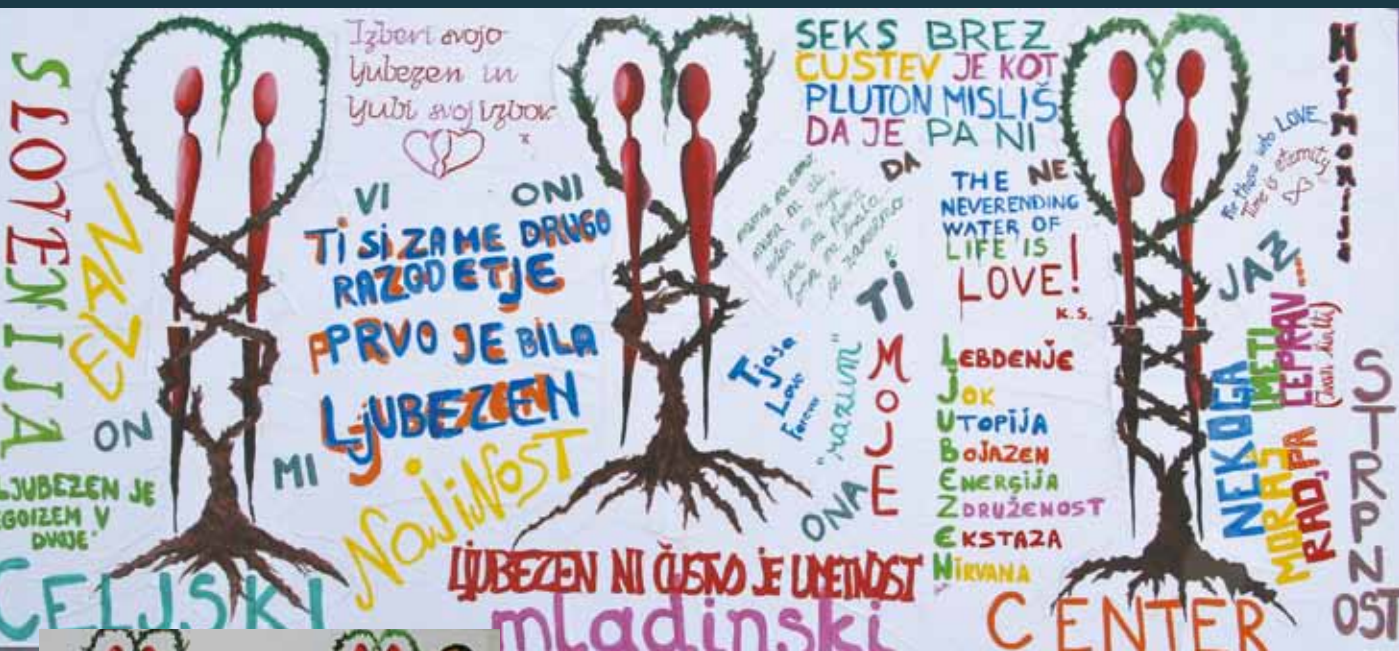 SLOVENIJA
ELAN
ON
LJUBEZEN JE
EGOIZEM V
DVOJE"
CELJSKI
Izberi svojo
ljubezen in
ljubi svoj izbor
VI
ONI
TI SI ZAME DRUGO
RAZODETJE
PRVO JE BILA
LJUBEZEN
MI
NAJINOST
LJUBEZEN NI ČUSTVO JE UMETNOST
mladinski
SEKS BREZ
ČUSTEV JE KOT
PLUTON MISLIŠ
DA JE PA NI
DA
NE
TI
Tjaša
Love
Forever
"razum"
ONA
MOJE
THE
NEVERENDING
WATER OF
LIFE IS
LOVE!
K.S.
LEBDENJE
JOK
UTOPIJA
BOJAZEN
ENERGIJA
ZDRUŽENOST
EKSTAZA
NIRVANA
CENTER
Harmonija
who LOVE
Time is eternity
JAZ
NEKOGA
MORAŠ
IMETI
RAD, PA
ČEPRAV....
STRPNOST